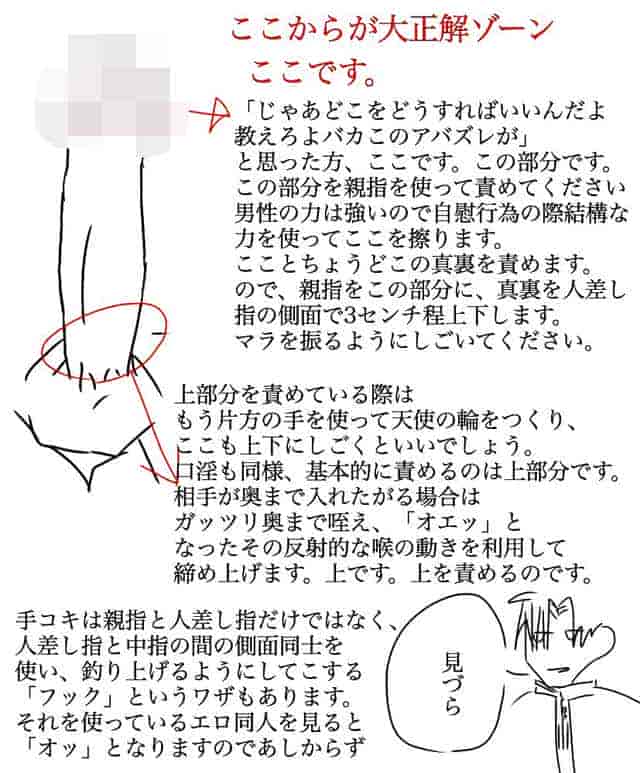 ここからが大正解ゾーン
ここです。
「じゃあどこをどうすればいいんだよ
教えろよバカこのアバズレが」
と思った方、ここです。この部分です。
この部分を親指を使って責めてください
男性の力は強いので自慰行為の際結構な
力を使ってここを擦ります。
こことちょうどこの真裏を責めます。
ので、親指をこの部分に、真裏を人差し
指の側面で3センチ程上下します。
マラを振るようにしごいてください。
上部分を責めている際は
もう片方の手を使って天使の輪をつくり、
ここも上下にしごくといいでしょう。
口淫も同様、基本的に責めるのは上部分です。
相手が奥まで入れたがる場合は
ガッツリ奥まで咥え、「オエッ」と
なったその反射的な喉の動きを利用して
締め上げます。上です。上を責めるのです。
手コキは親指と人差し指だけではなく、
人差し指と中指の間の側面同士を
使い、釣り上げるようにしてこする
「フック」というワザもあります。
それを使っているエロ同人を見ると
「オッ」となりますのであしからず
見づら